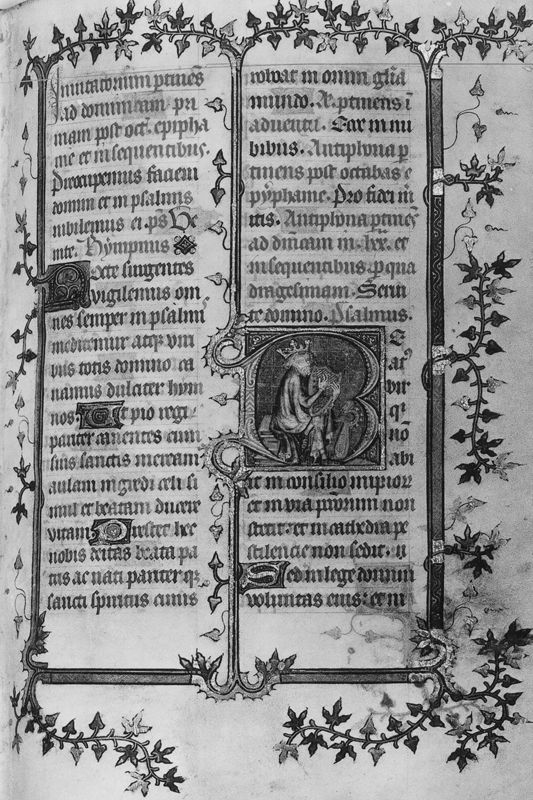 Inuitatorium ptinēs
ad dominicam pri
mam post oct. epipha
nie et in sequentibus.
Preocupemus faciem
domini et in psalmis
iubilemus ei. ps Ve
nite. Hympnus
Nocte surgentes
vigilemus om
nes semper in psalmis
meditemur atqꝫ viri
bus totis domino ca
namus dulciter hym
nos. Ut pio regi
pariter canentes cum
suis sanctis mereamur
aulam ingredi celi si
mul et beatam ducere
vitam Prestet hec
nobis deitas beata pa
tris ac nati pariter qꝫ
sancti spiritus cuius
reboat in omni gl̄ia
mundo. ptinens ī
aduentu. Ecce in nu
bibus. Antiphona p
tinens post octabas e
pyphanie. Pro fidei
Antiphona ptinēs
ad dn̄icam in .lxx. et
in sequentibus p qua
dragesimam. Serui
te domino. Psalmus.
BE
atꝰ
vir
qⁱ
nō
abi
it in consilio impioꝝ
et in via pctorum non
stetit: et in cathedra pe
stilencie non sedit.
Sed in lege domini
voluntas eius: et in